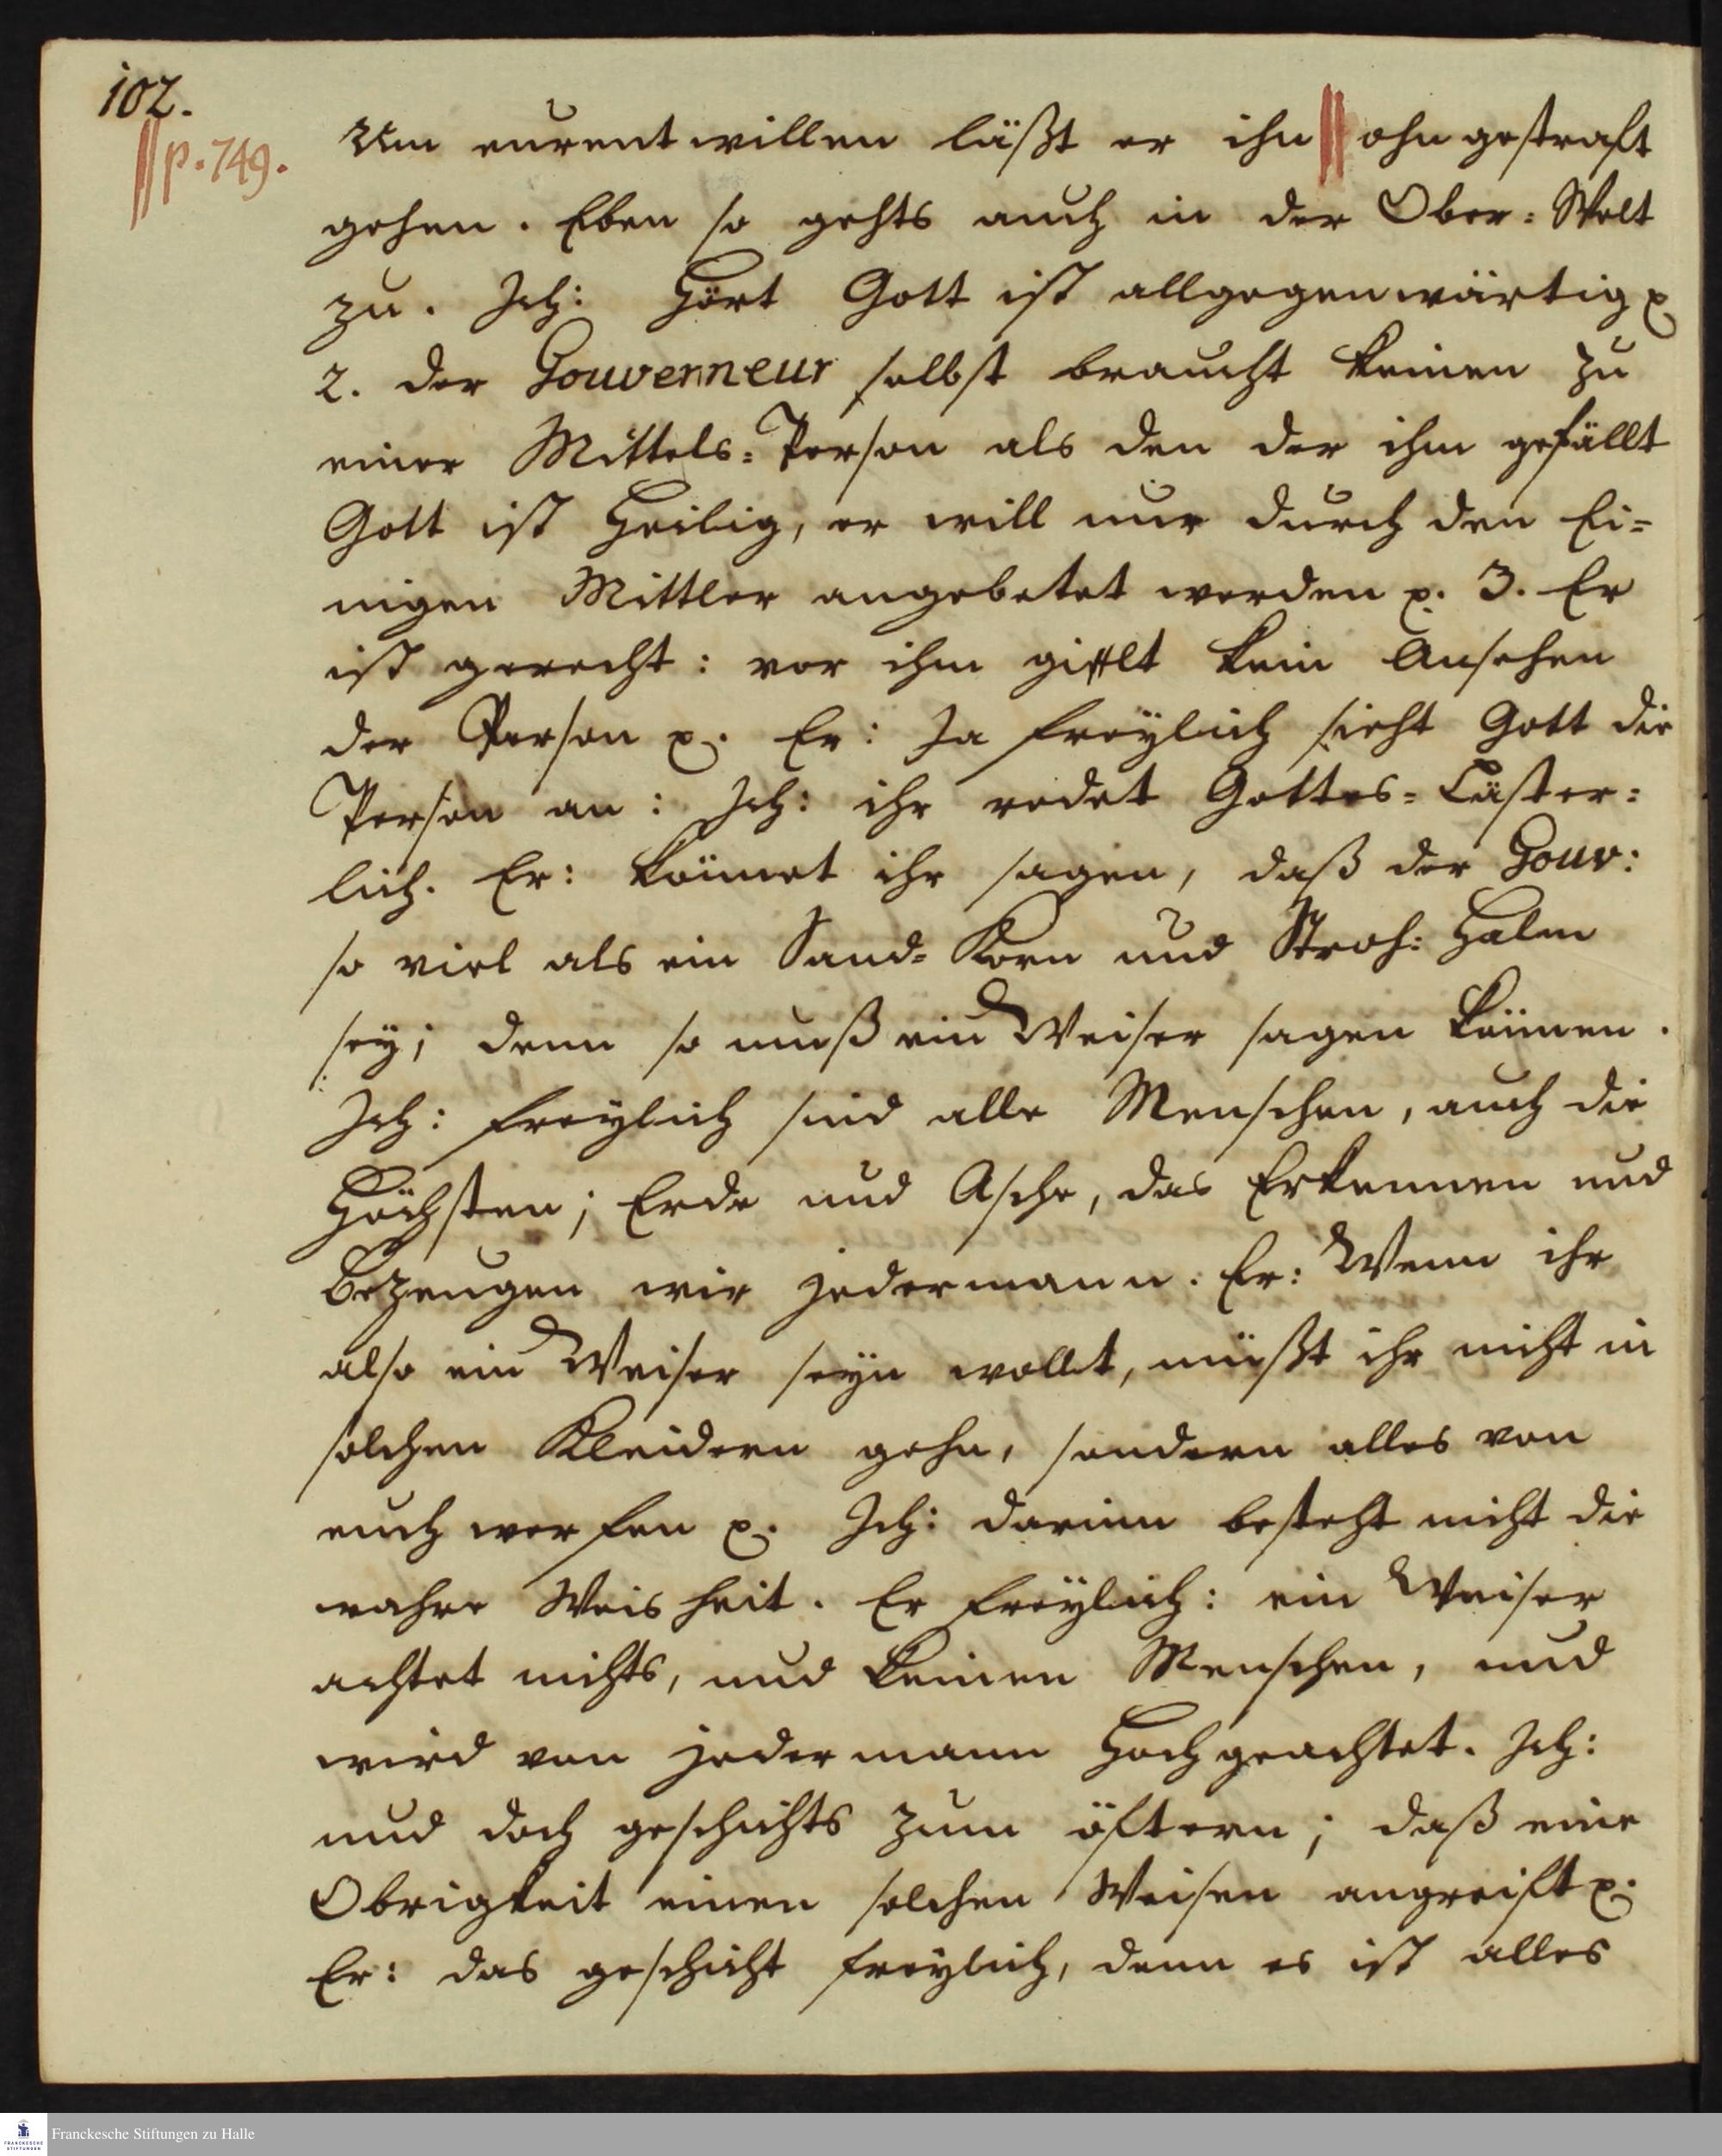 102.
‖p. 749.
Um eurentwillen läßt er ihn ‖ ohngestraft
gehen. Eben so gehts auch in der Ober-Welt
zu. Ich: Hört Gott ist allgegenwärtig p
2. der Gouverneur selbst braucht keinen zu
einer Mittels-Person als den der ihm gefällt
Gott ist Heilig, er will nur durch den Ei-
nigen Mittler angebetet werden p. 3. Er
ist gerecht: vor ihm gilt kein Ansehen
der Person p. Er: Ja freylich sieht Gott die
Person an: Ich: ihr redet Gottes-Läster-
lich. Er: könnet ihr sagen, daß der Gouv:
so viel als ein Sand-Korn und Stroh-Halm
sey; denn so muß ein Weiser sagen können.
Ich: freylich sind alle Menschen, auch die
Höchsten; Erde und Asche, das Erkennen und
Bezeugen wir jedermann. Er: Wenn ihr
also ein Weiser seyn wollt, müßt ihr nicht in
solchen Kleidern gehn, sondern alles von
euch werfen p. Ich: darinn besteht nicht die
wahre Weisheit. Er freylich: ein Weiser
achtet nichts, und keinen Menschen, und
wird von jedermann Hochgeachtet. Ich:
und doch geschichts zum öftern; daß eine
Obrigkeit einen solchen Weisen angreift p.
Er: das geschicht freylich, denn es ist alles
Franckesche Stiftungen zu Halle
FRANCKESCHE
STIFTUNGEN